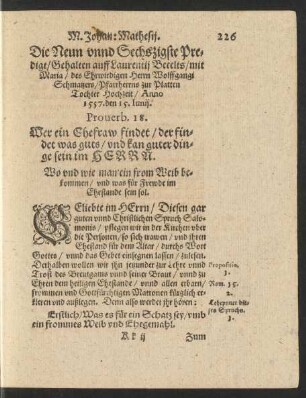 M. Johan: Mathesij. 226
Die Neun vnnd Sechszigste Pre-
digt/Gehalten auff Laurentij Beckes/mit
Maria/des Ehrwirdigen Herrn Wolffgangi
Schmauers/Pfarrherns zur Platten
Tochter Hochzeit/Anno
1557. den 15. Iunij.
Prouerb. 18.
Wer ein Ehefraw findet/der fin-
det was guts/vnd kan guter din-
ge sein im HERRN.
Wo vnd wie man ein from Weib be-
kommen/vnd was für Frewde im
Ehestande sein sol.
GEliebte im HErrn/Diesen gar
guten vnnd Christlichen Spruch Salo-
monis/pflegen wir in der Kirchen vber
die Personen/so sich trawen/vnd jhren
Ehestand für dem Altar/durchs Wort
Gottes/vnnd das Gebet einsegnen lassen/zulesen.
Derhalben wollen wir jhn jetzunder zur Lehre vnnd
Propositio.
Trost des Breutgams vnnd seiner Braut/vnnd zu
1.
Ehren dem heiligen Ehestande/vnnd allen erbarn/
Rom. 15.
frommen vnd Gottfürchtigen Matronen kürtzlich er-
2.
kleren vnd außlegen. Denn also werdet jhr hören:
Erstlich/Was es für ein Schatz sey/vmb
1.
ein frommes Weib vnd Ehegemahl.
Kk ij Zum